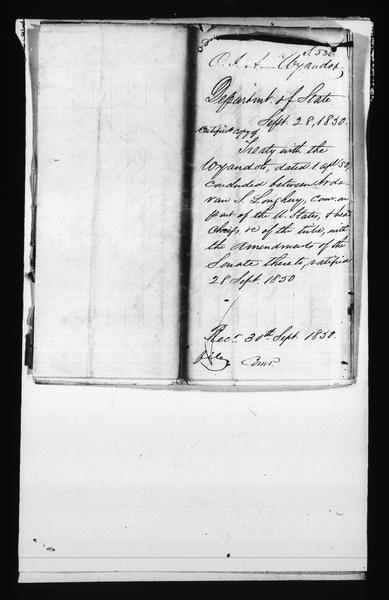 S. 536
O. I. A. Wyandot,
Department of State
Sept. 28, 1850.
Certified copy of
Treaty with the
Wyandots, dated 1 apl 50,
concluded between Ardavan
S. Loughery, comr. on
part of the U. States, & head
Chiefs, &c of the tribe, with
the amendments of the
Senate thereto, ratified
28 Sept. 1850
Rec. 30th Sept. 1850.
file